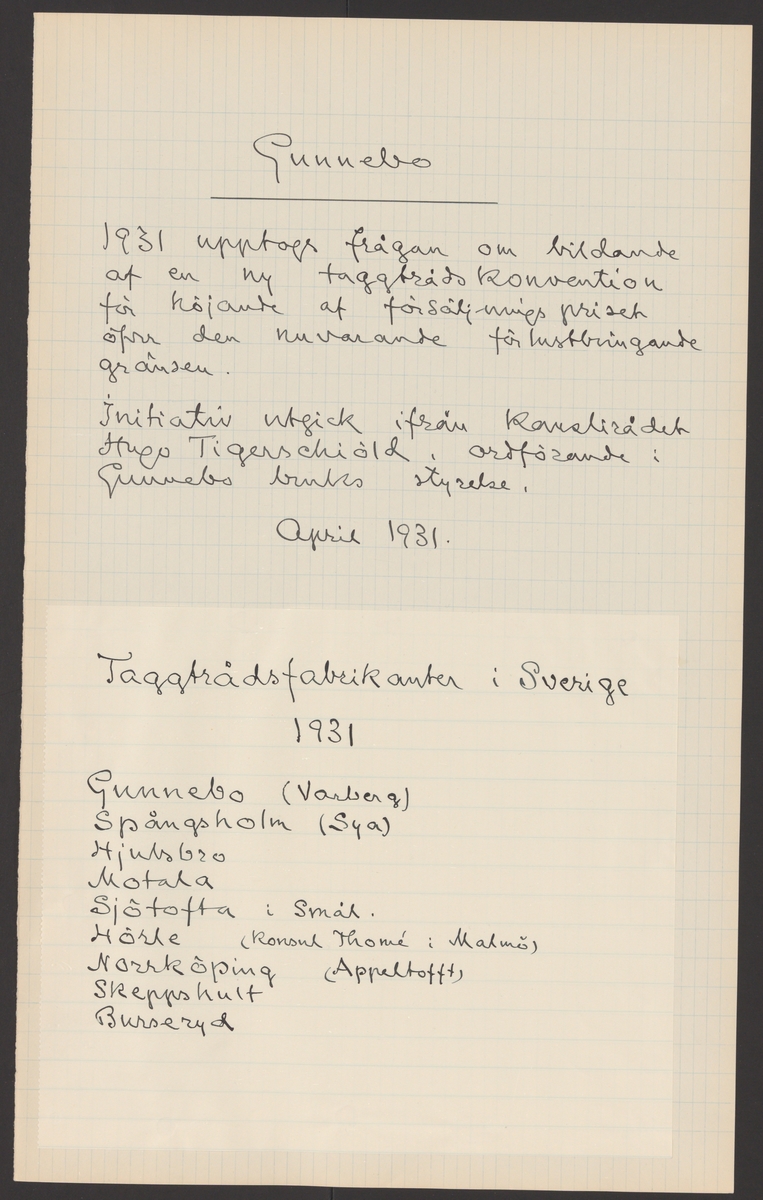 Gunnebo
1931 upptogs frågan om bildande
af en ny taggtrådskonvention
för höjande af försäljningspriset
öfver den nuvarande förlustbringande
gränsen.
Initiativ utgick ifrån Kanslirådet
Hugo Tigerschiöld, ordförande i
Gunnebo bruks styrelse.
April 1931.
Taggtrådsfabrikanter i Sverige
1931
Gunnebo (Varberg)
Spångsholm (Sya)
Hjulsbro
Motala
Sjötofta i Smål.
Hörle (Konsul Thomé i Malmö)
Norrköping (Appeltofft)
Skeppshult
Burseryd